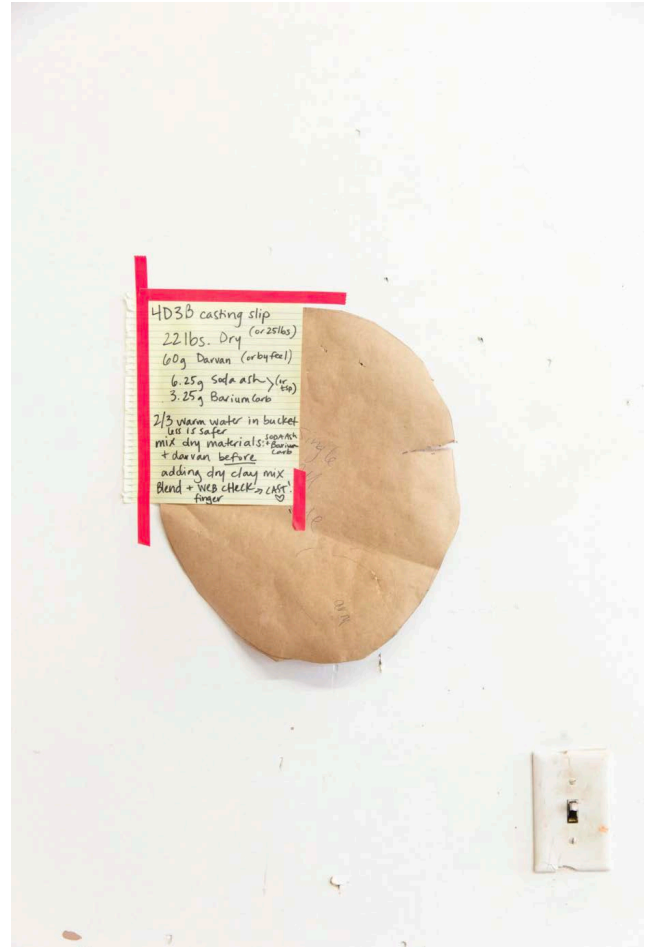 4D3B casting slip
22 lbs. Dry (or 25 lbs)
60g Darvan (or by feel)
6.25g Soda ash > (or tsp)
3.25g Barium Carb
2/3 warm water in bucket
less is safer
mix dry materials: soda ash + Barium Carb
+ darvan before
adding dry clay mix
Blend + WEB CHECK → CAST!
finger ♡